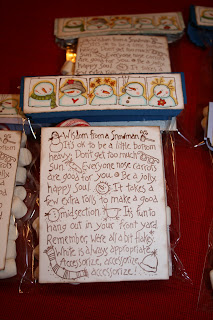 Wisdom from a Snowman
It's ok to be a little bottom
heavy. Don't get too much
sun! Everyone nose carrots
are good for you. Be a jolly,
happy soul. It takes a
few extra rolls to make a good
midsection. It's fun to
hang out in your front yard.
Remember, We're all a bit flakey.
White is always appropriate.
Accessorize, accessorize,
accessorize!